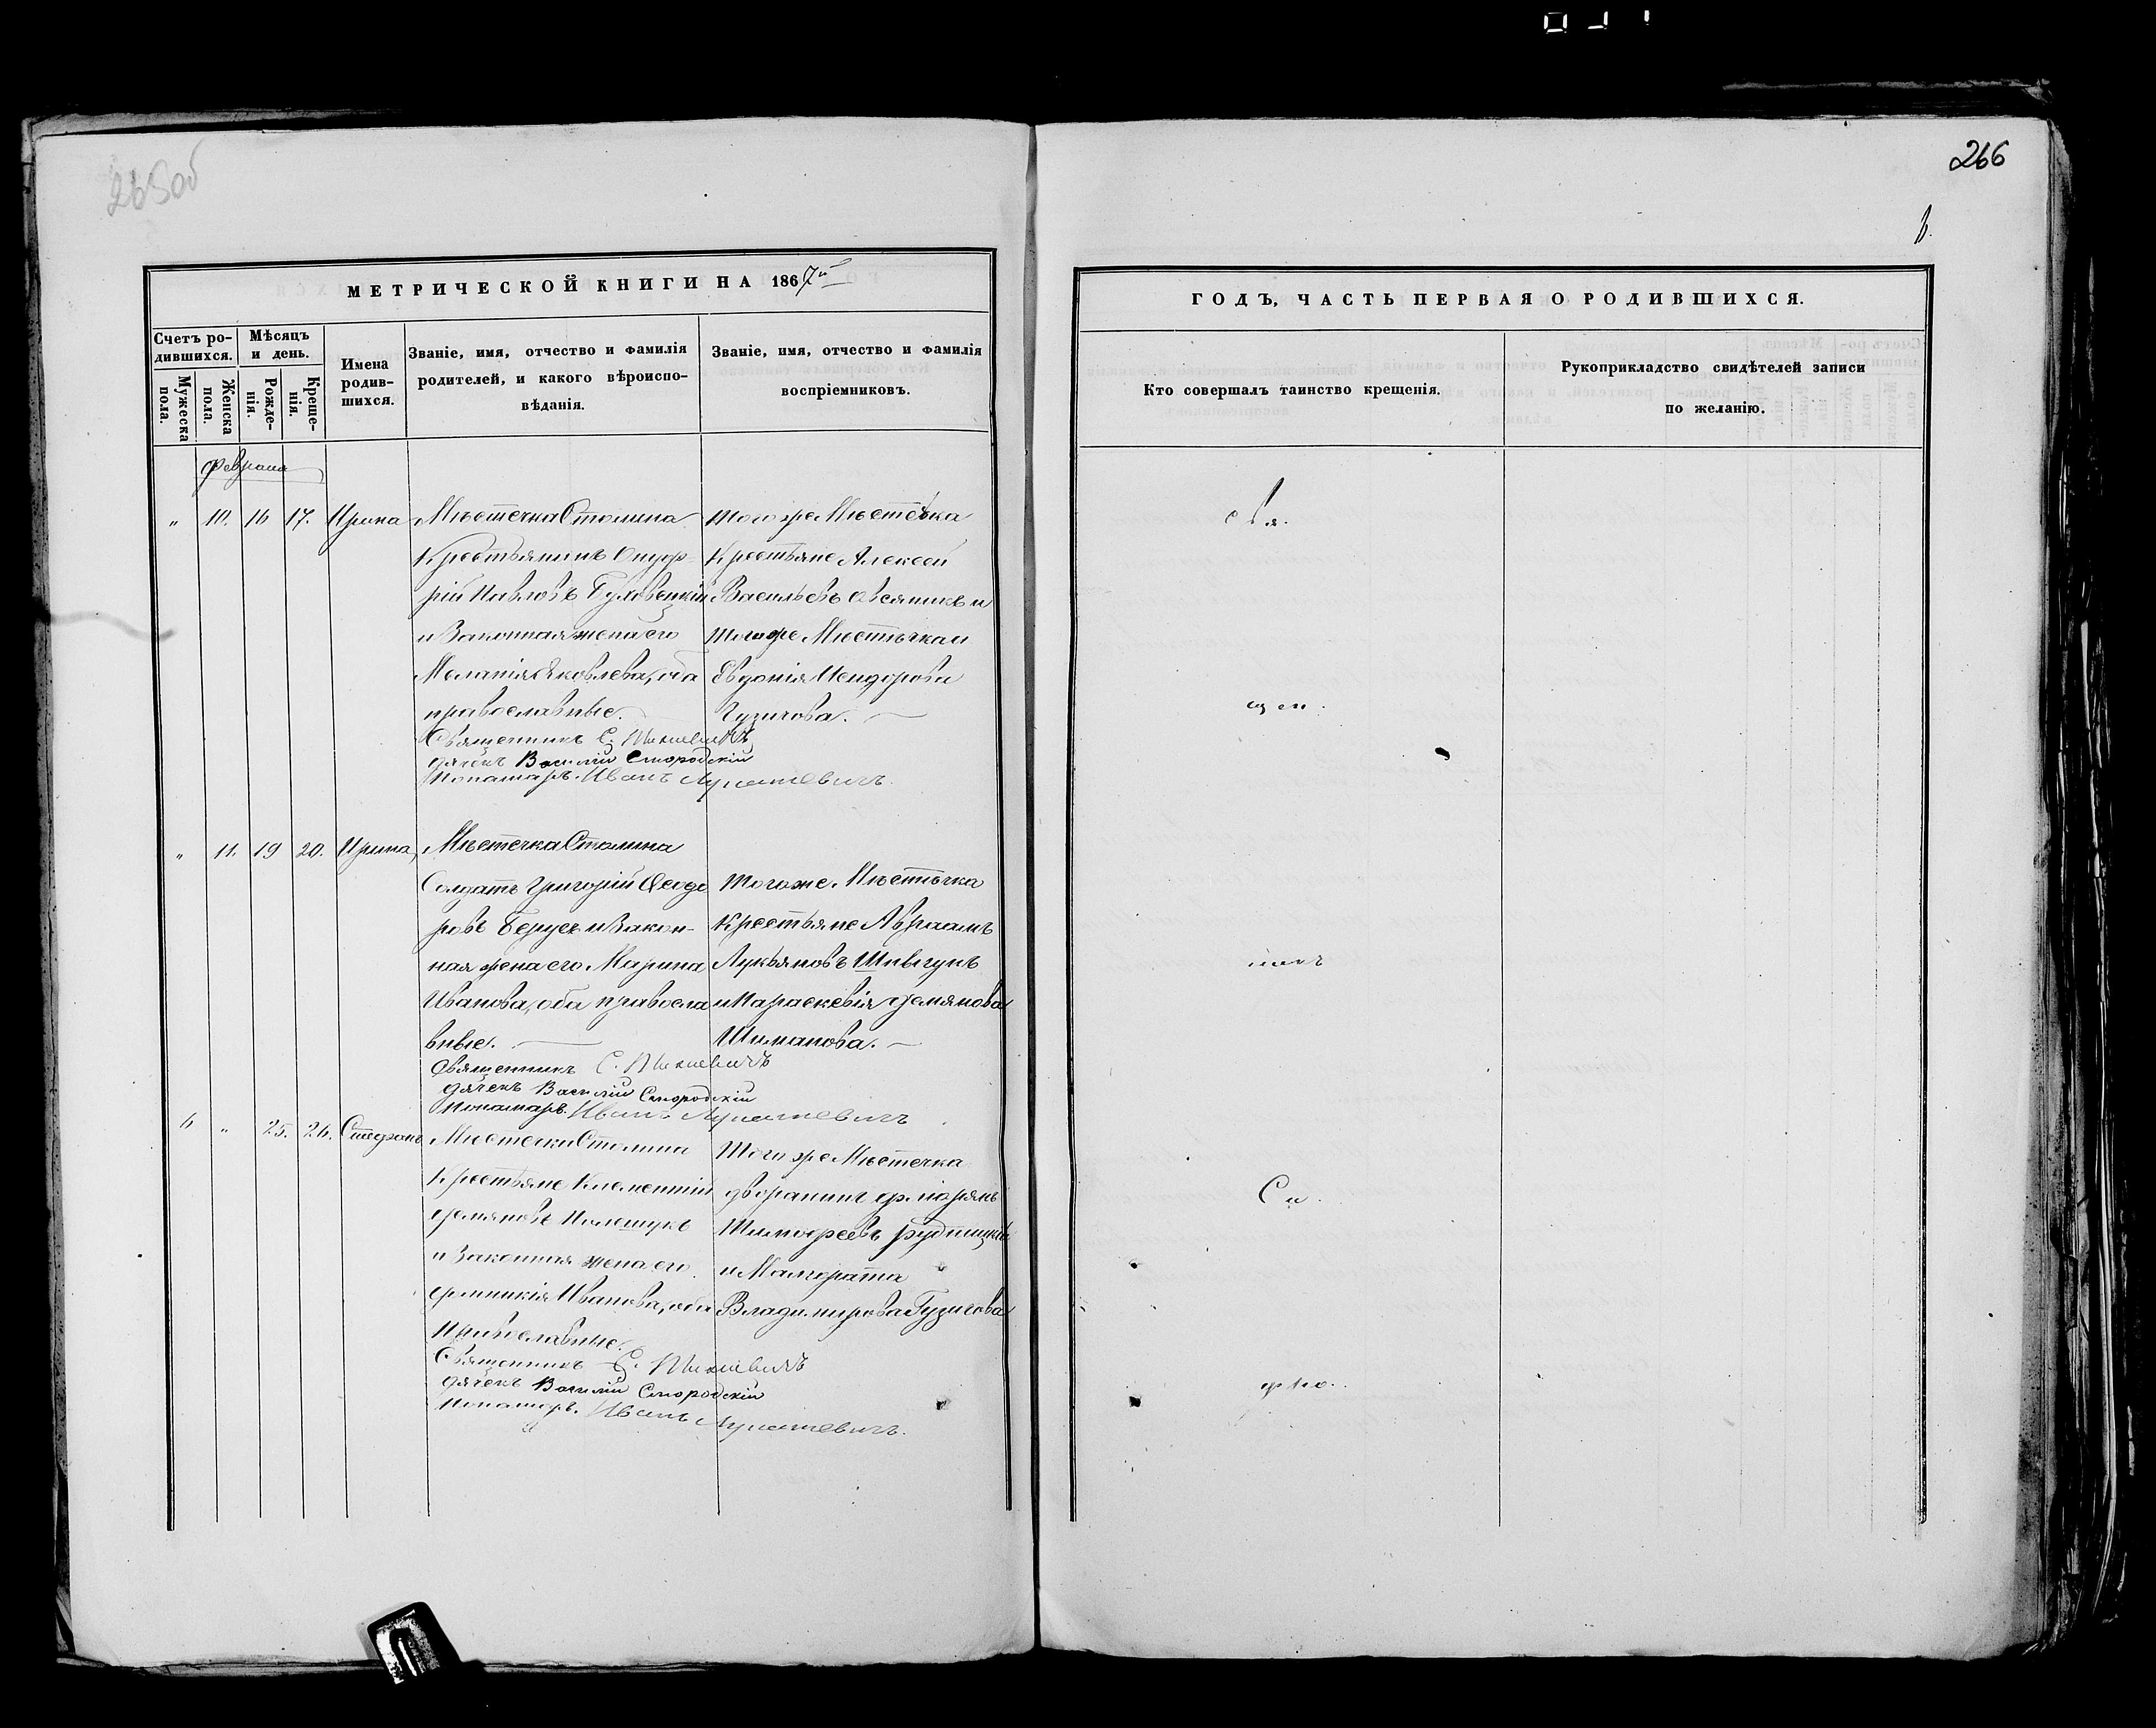 265об
МЕТРИЧЕСКОЙ КНИГИ НА 1867й
Счетъ ро-
дившихся.
Мужеска
пола.
Женска
пола.
Мѣсяцъ
и день.
Рожде-
нія.
Креще-
нія.
Имена
родив-
шихся.
Званіе, имя, отчество и фамилія
родителей, и какого вѣроиспо-
вѣданія.
Званіе, имя, отчество и фамилія
воспріемниковъ.
Февраля
" 10. 16 17. Ирина
Мѣстечка Столина
Крестьянинъ Онуф-
рій Павловъ Буховецкій
и Законная жена его
Меланія Яковлева, оба
православные.
Тогоже Мѣстечка
Крестьяне Алексей
Васильевъ Овсяникъ и
тогоже Мѣстечка
Евдокія
Гузичова.
Священникъ С.
Дячекъ Василій Смородскій
Понамарь Иванъ
" 11. 19 20. Ирина,
Мѣстечка Столина
Солдатъ Григорій Ѳеодо
ровъ Берусъ и Закон-
ная жена его Марина
Иванова, оба правосла
вные.
Тогоже Мѣстечка
Крестьяне Авраамъ
Лукьяновъ
и Параскевія Демянова
Шиманова.
Священникъ С.
Дячекъ Василій Смородскій
Понамарь Иванъ
6 " 25. 26. Стефанъ
Мѣстечка Столина
Крестьяне Клементій
Демяновъ Полешукъ
и Законная жена его
Иванова, оба
Православные.
Тогоже Мѣстечка
дворанинъ
Тимофеевъ Рудницкій
и
Владимирова Гузичова
Священникъ С.
Дячекъ Василій Смородскій
Понамарь Иванъ
266
ГОДЪ, ЧАСТЬ ПЕРВАЯ О РОДИВШИХСЯ.
Кто совершалъ таинство крещенія.
Рукоприкладство свидѣтелей записи
по желанію.
свя.
щен.
никъ